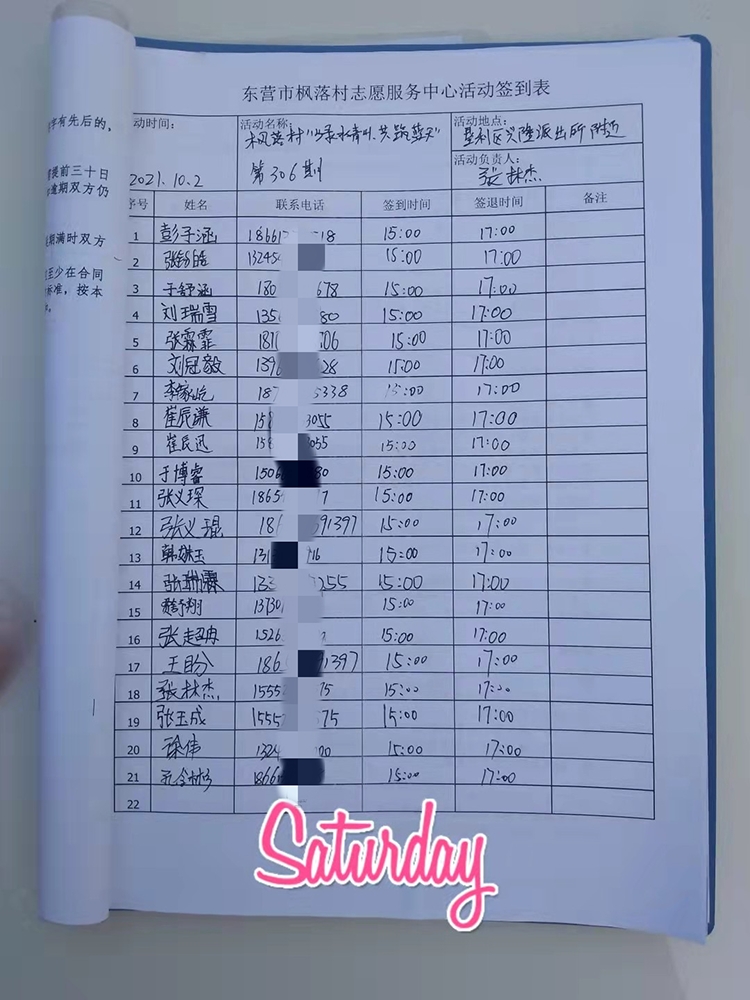 字有先后的,
需提前三十日
逾期双方仍
期满时双方
至少在合同
标准,按本
东营市枫落村志愿服务中心活动签到表
动时间: 活动名称: 活动地点:
枫落村"绿水青山、共筑蓝天" 垦利区兴隆派出所附近
活动负责人:
2021.10.2 第306期 张林杰
序号 姓名 联系电话 签到时间 签退时间 备注
1 彭子涵 18661 18 15:00 17:00
2 13245 15:00 17:00
3 于舒涵 180 678 15:00 17:00
4 刘瑞雪 135 80 15:00 17:00
5 张霖霏 181 06 15:00 17:00
6 刘冠毅 139 28 15:00 17:00
7 李家屹 187 5338 15:00 17:00
8 崔辰谦 15 3055 15:00 17:00
9 崔民迅 15 055 15:00 17:00
10 于博睿 1506 80 15:00 17:00
11 张义琛 1865 7 15:00 17:00
12 张义琨 18 91397 15:00 17:00
13 韩姝玉 131 16 15:00 17:00
14 张珊霖 133 255 15:00 17:00
15 13730 15:00 17:00
16 张超冉 1526 15:00 17:00
17 王盼 186 1397 15:00 17:00
18 张林杰 1555 75 15:00 17:00
19 张玉成 1555 575 15:00 17:00
20 徐伟 1324 00 15:00 17:00
21 1866 15:00 17:00
22
Saturday